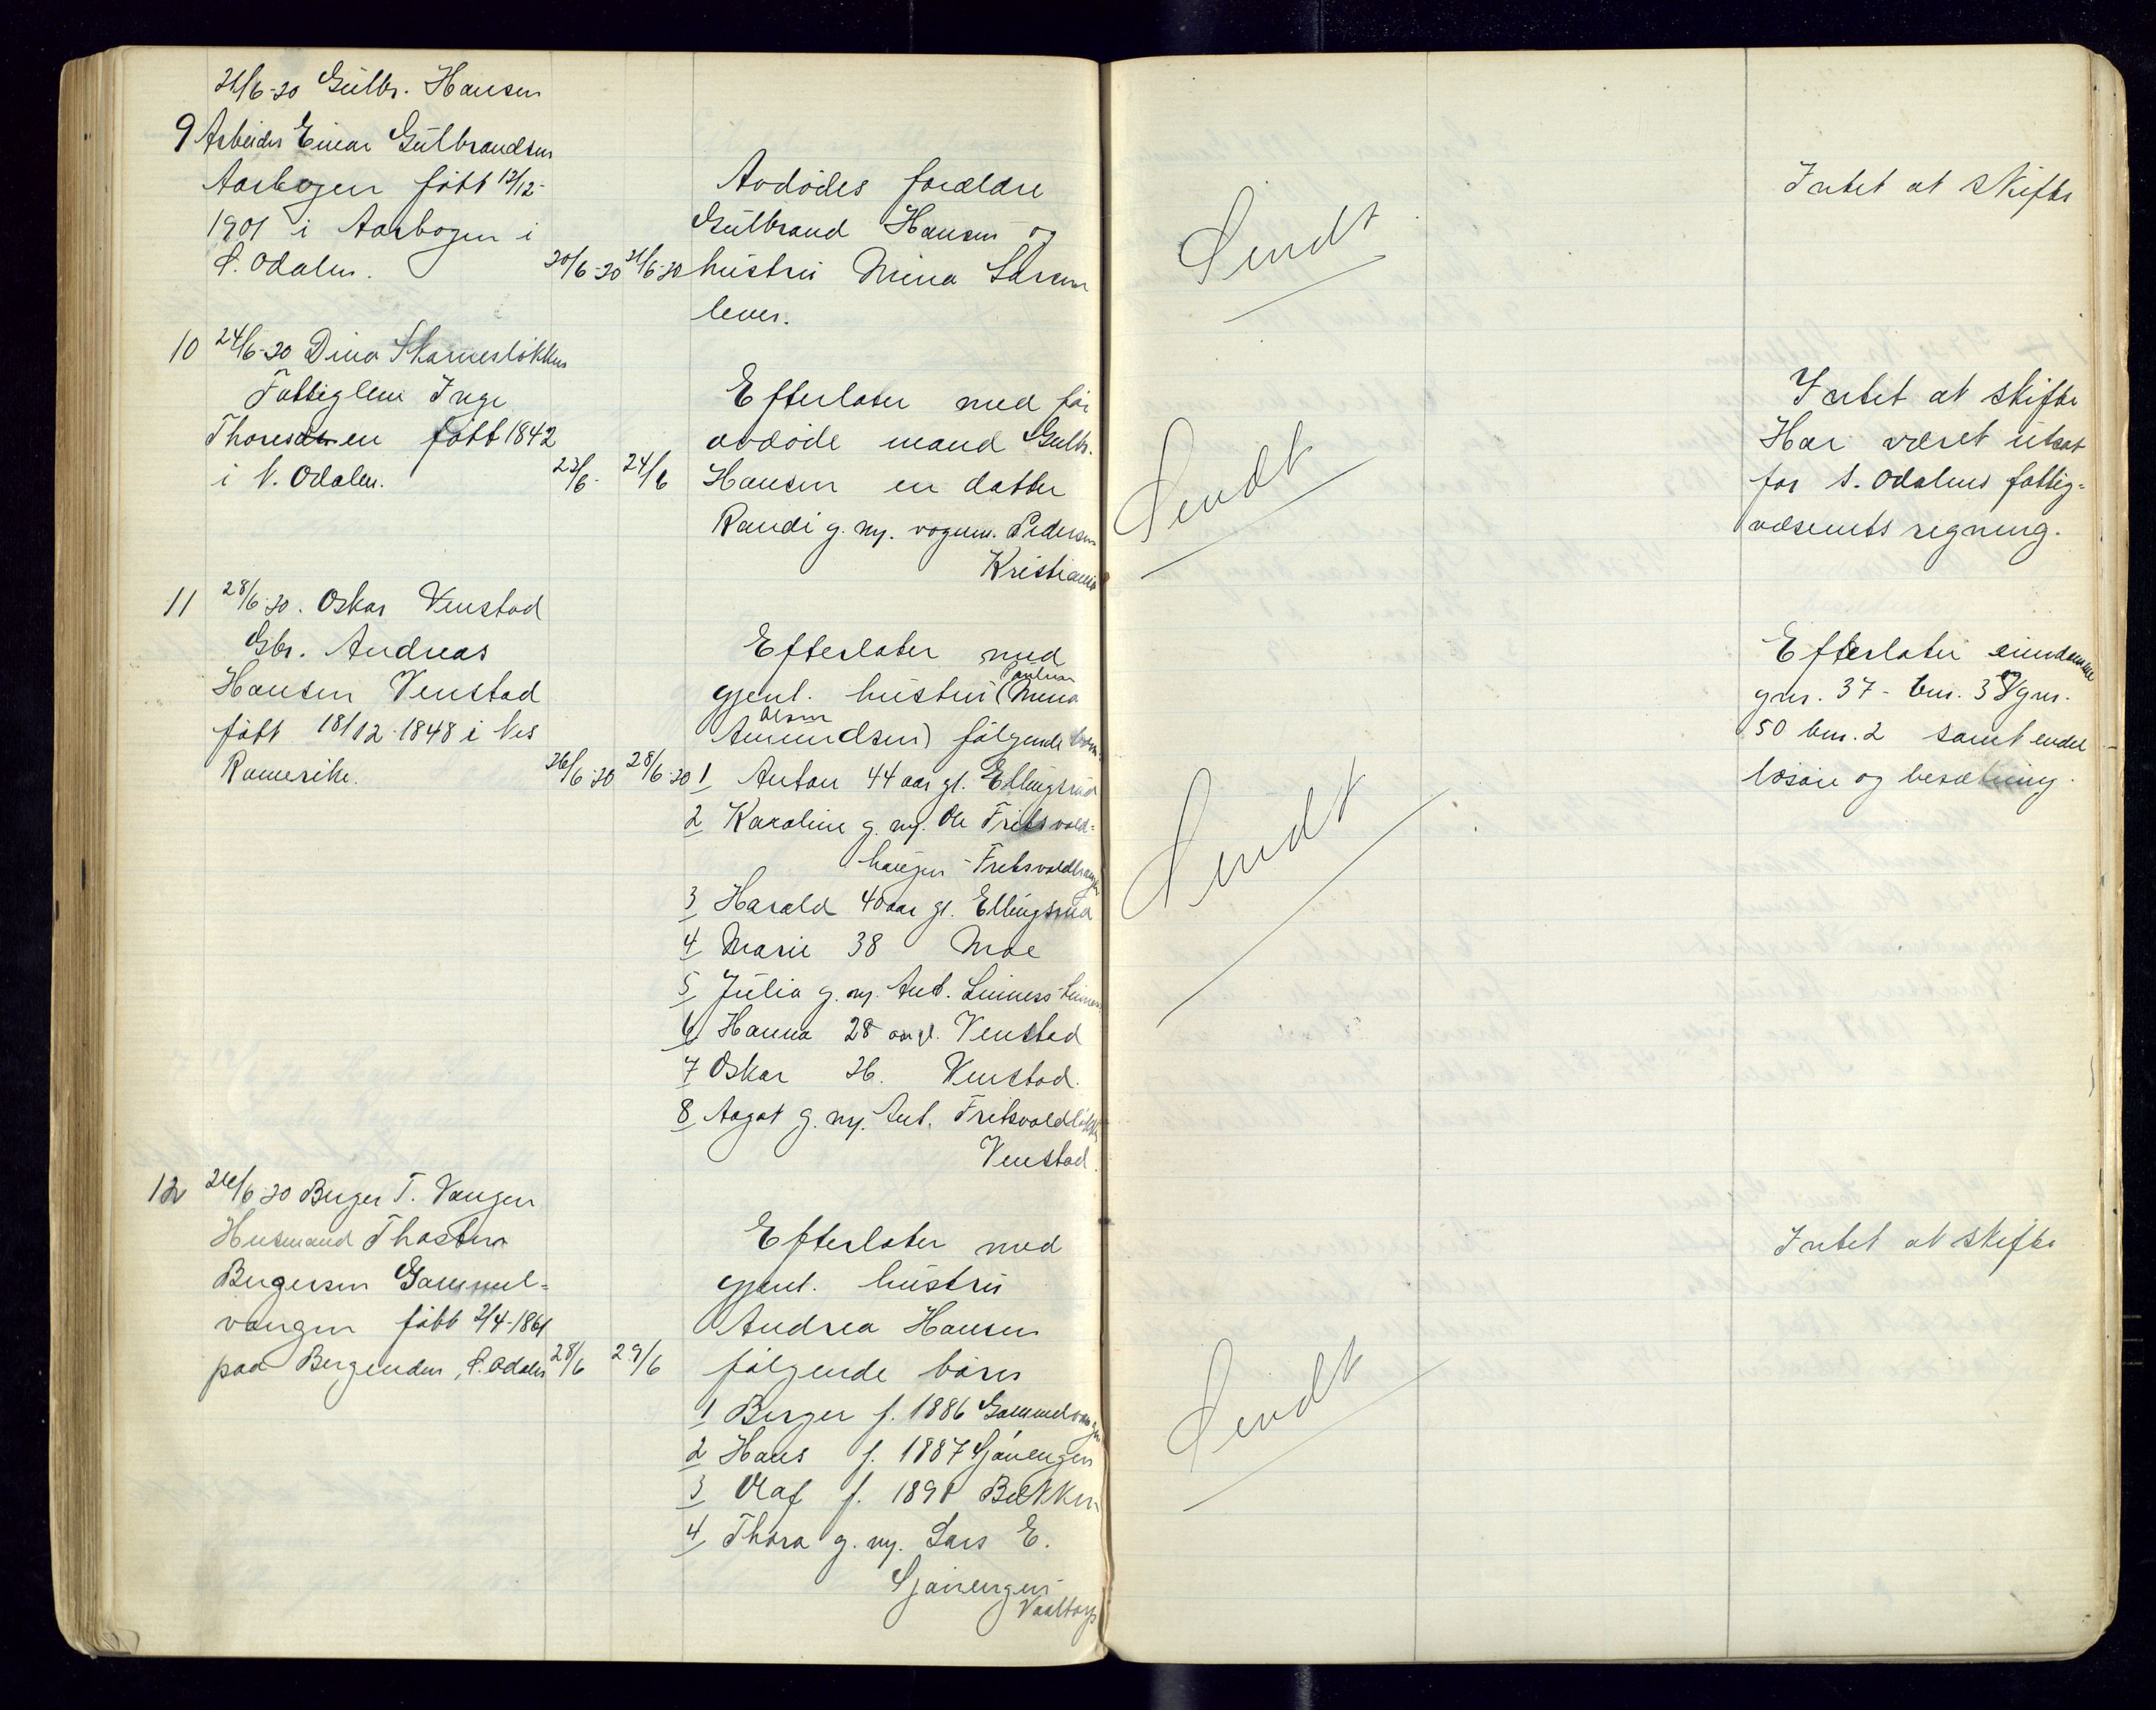 21/6-20 Gulbr. Hansen
9 Arbeider Einar Gulbrandsen
Aarbogen født 12/12-
1901 i Aarbogen i
S. Odalen. 20/6-20 21/6-20
Avdødes forældre
Gulbrand Hansen og
hustru Mina Larsen
lever.
Sendt
Intet at skifte
10 24/6-20 Dina Skarnesløkken
Fattiglem Inge
Thoresen født 1842
i N. Odalen. 23/6- 24/6
Efterlater med før
avdøde mand Gulbr.
Hansen en datter
Randi g. m. vognm. Pedersen
Kristiania
Sendt
Intet at skifte
Har været utsat
for S. Odalens fattig-
væsenets regning.
11 28/6-20. Oskar Venstad
Gbr. Andreas
Hansen Venstad
født 18/12-1848 i Nes
Romerike. 26/6-20 28/6-20
Efterlater med
gjenl. hustru (Mina
Amundsen) følgende børn
1 Anton 44 aar gl. Ellingsrud
2 Karoline g. m. Ole Fritsvold-
haugen - Fritsvoldhaugen
3 Harald 40 aar gl. Ellingsrud
4 Marie 38 Moe
5 Julia g. m. Ant. Linness - Linness
6 Hanna 28 aar gl. Venstad
7 Oskar 26. Venstad.
8 Aagot g. m. Ant. Fritsvoldløkken
Venstad.
Sendt
Efterlater eiendommene
gnr. 37 - bnr. 3 og gnr.
50 bnr. 2 samt endel
løsøre og besætning.
12 26/6-20 Berger T. Vangen
Husmand Thosten
Bergersen Gammel-
vangen født 2/4-1861
paa Bergenden, S. Odalen 28/6 29/6
Efterlater med
gjenl. hustru
Andrea Hansen
følgende børn
1 Berger f. 1886 Gammelvangen
2 Hans f. 1887 Sjøenengen
3 Olaf f. 1891 Bekken
4 Thora g. m. Lars E.
Sendt
Intet at skifte